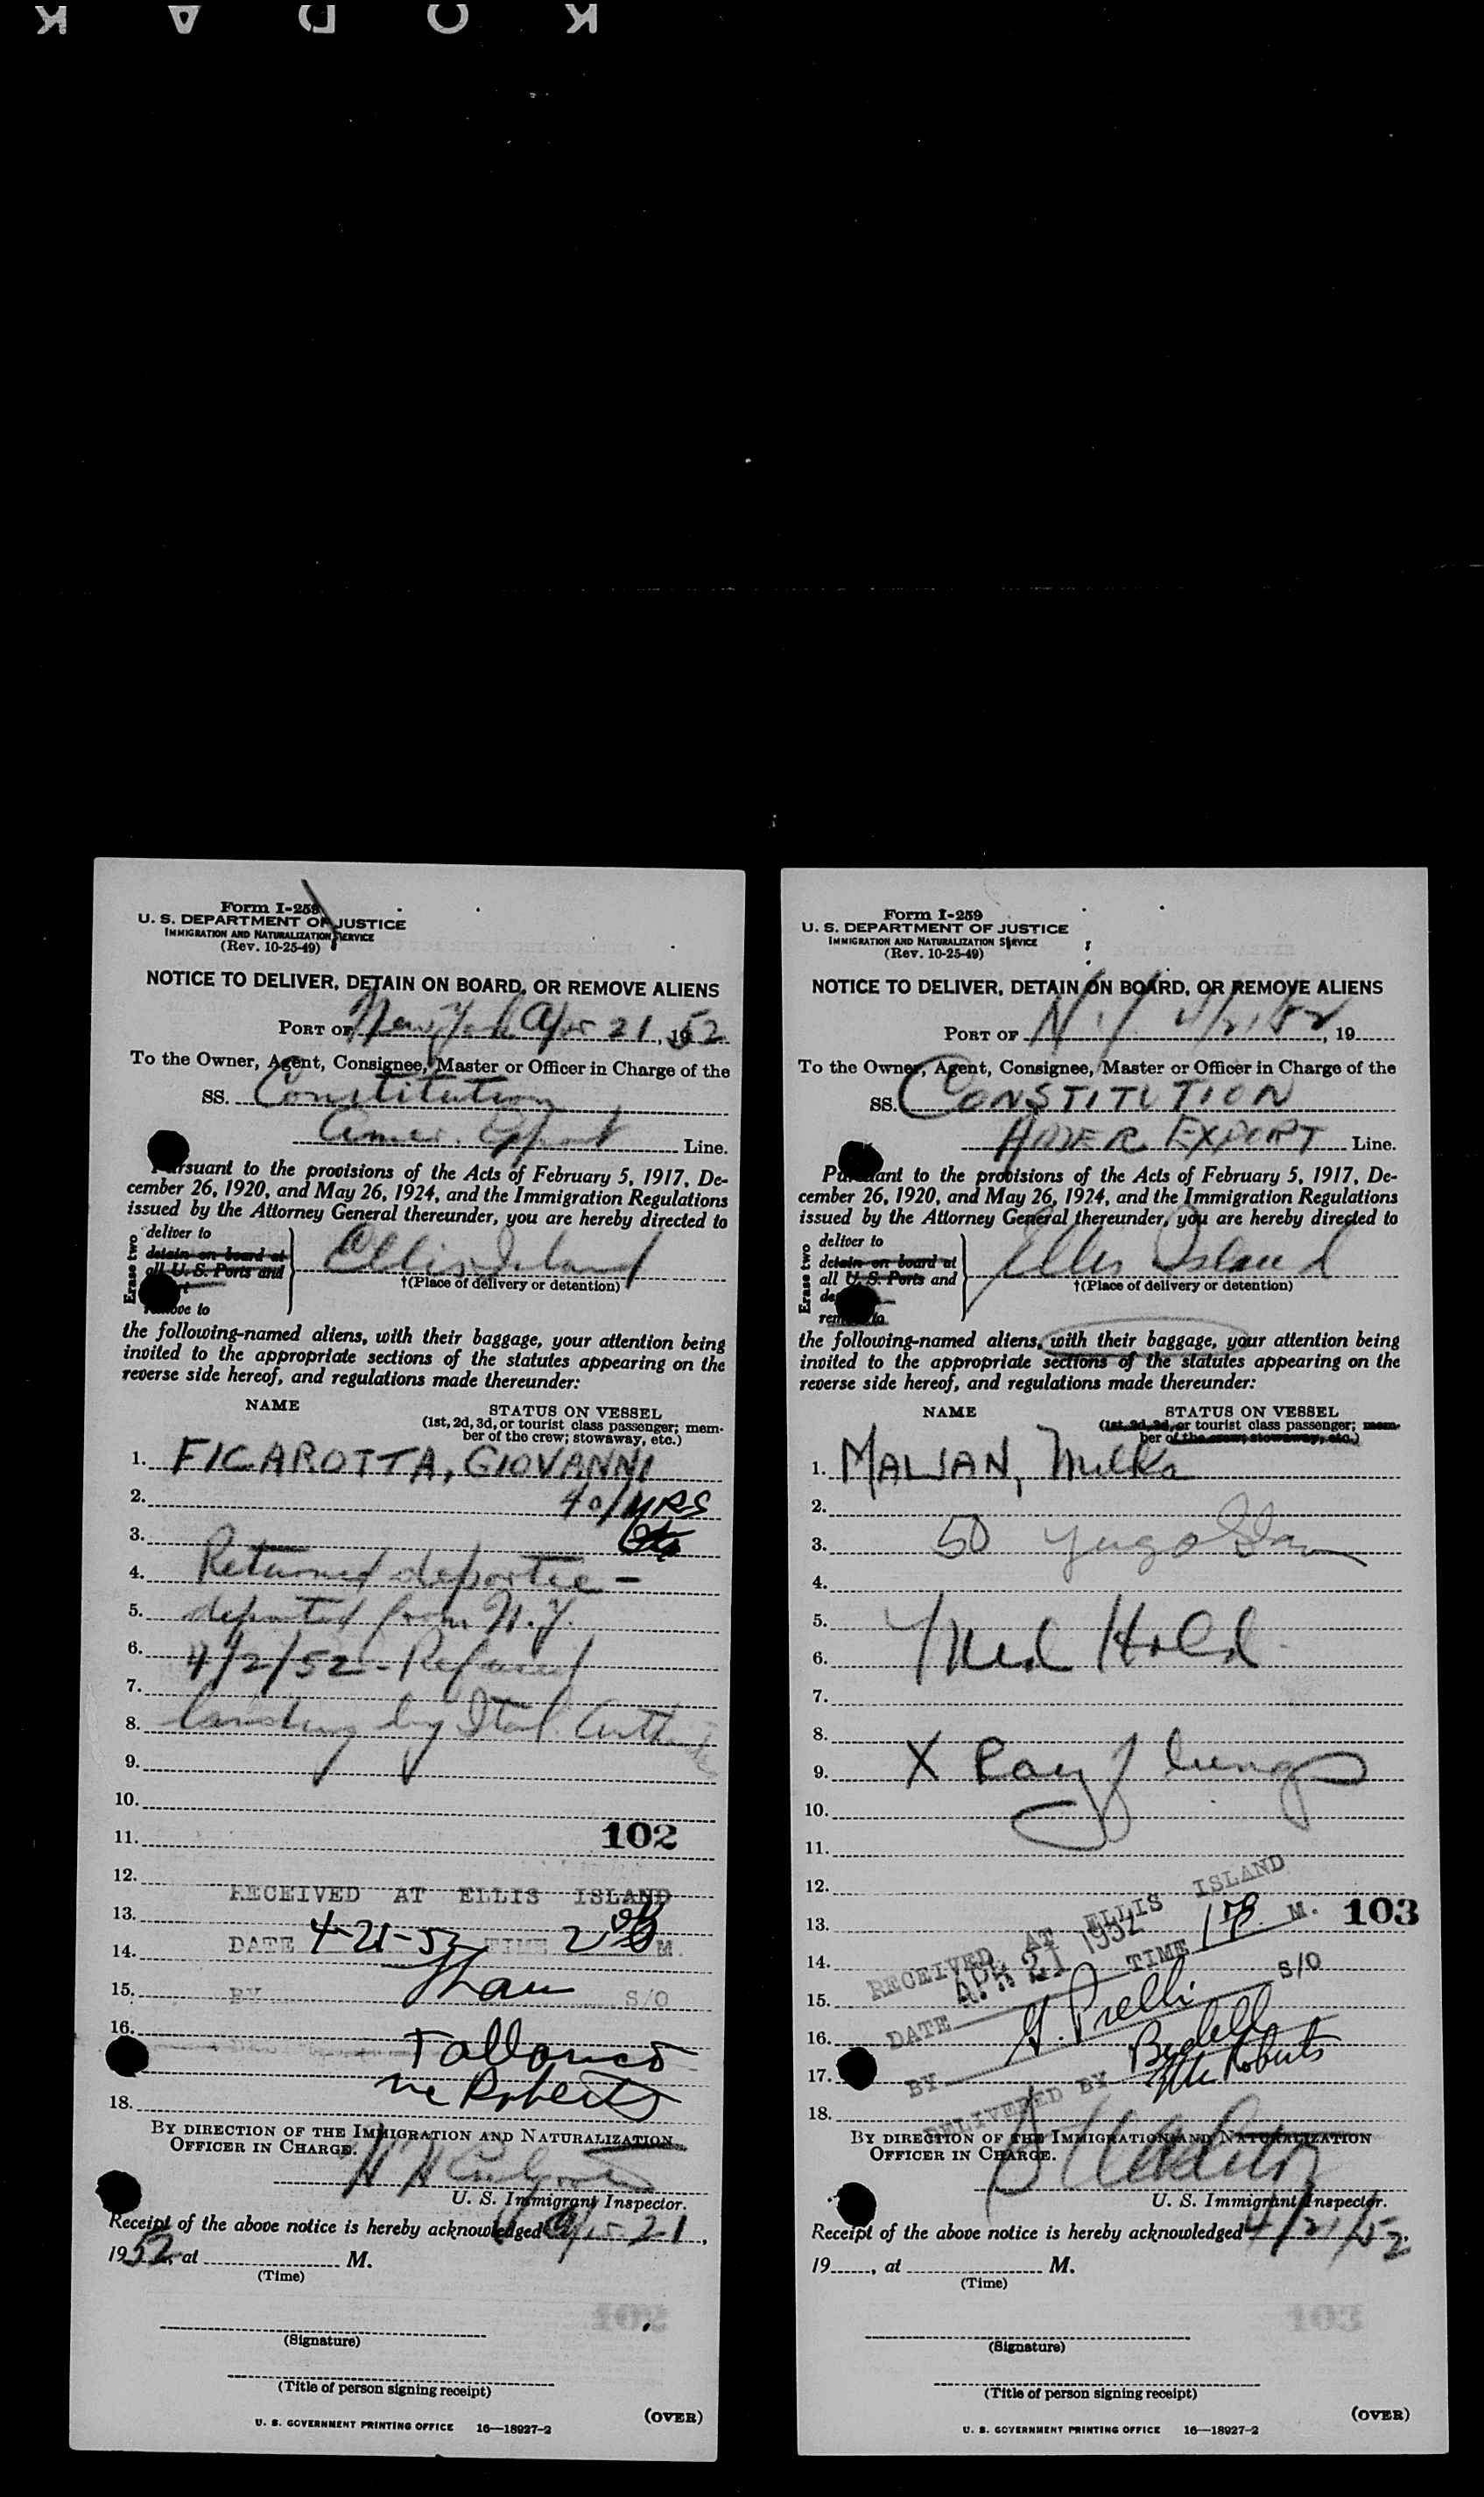 KODAK
Form I-259
U. S. DEPARTMENT OF JUSTICE
IMMIGRATION AND NATURALIZATION SERVICE
(Rev. 10-25-49)
NOTICE TO DELIVER, DETAIN ON BOARD, OR REMOVE ALIENS
PORT OF New York Apr 21, 1952
To the Owner, Agent, Consignee, Master or Officer in Charge of the
SS. Constitution
Amer. Export Line.
Pursuant to the provisions of the Acts of February 5, 1917, De-
cember 26, 1920, and May 26, 1924, and the Immigration Regulations
issued by the Attorney General thereunder, you are hereby directed to
Erase two
deliver to
detain on board at
all U. S. Ports and
remove to
Ellis Island
†(Place of delivery or detention)
the following-named aliens, with their baggage, your attention being
invited to the appropriate sections of the statutes appearing on the
reverse side hereof, and regulations made thereunder:
NAME STATUS ON VESSEL
(1st, 2d, 3d, or tourist class passenger; mem-
ber of the crew; stowaway, etc.)
1. FICAROTTA, GIOVANNI
2. 40/YRS
3.
4. Returned deportee -
5. deported from N.Y.
6. 4/2/52 - Refused
7.
8. landing by Ital. Authorities
9.
10.
11. 102
12.
RECEIVED AT ELLIS ISLAND
13.
DATE 4-21-52 TIME 2 M.
14.
15. BY S/O
16.
McRoberts
18.
BY DIRECTION OF THE IMMIGRATION AND NATURALIZATION
OFFICER IN CHARGE.
U. S. Immigrant Inspector.
Receipt of the above notice is hereby acknowledged Apr 21,
1952, at M.
(Time)
102
(Signature)
(Title of person signing receipt)
(OVER)
U. S. GOVERNMENT PRINTING OFFICE 16—18927-2
Form I-259
U. S. DEPARTMENT OF JUSTICE
IMMIGRATION AND NATURALIZATION SERVICE
(Rev. 10-25-49)
NOTICE TO DELIVER, DETAIN ON BOARD, OR REMOVE ALIENS
PORT OF N.Y. 4/21/52, 19
To the Owner, Agent, Consignee, Master or Officer in Charge of the
SS. CONSTITUTION
AMER EXPORT Line.
Pursuant to the provisions of the Acts of February 5, 1917, De-
cember 26, 1920, and May 26, 1924, and the Immigration Regulations
issued by the Attorney General thereunder, you are hereby directed to
Erase two
deliver to
detain on board at
all U. S. Ports and
remove to
Ellis Island
†(Place of delivery or detention)
the following-named aliens, with their baggage, your attention being
invited to the appropriate sections of the statutes appearing on the
reverse side hereof, and regulations made thereunder:
NAME STATUS ON VESSEL
(1st, 2d, 3d, or tourist class passenger; mem-
ber of the crew; stowaway, etc.)
1. MALJAN, Milka
2.
3. 50 Yugoslav
4.
5.
6. Med Hold
7.
8.
9. X Ray of lungs
10.
11.
12.
RECEIVED AT ELLIS ISLAND
13. 103
14.
DATE APR 21 1952 TIME M.
15.
16.
BY S/O
17.
DELIVERED BY McRoberts
18.
BY DIRECTION OF THE IMMIGRATION AND NATURALIZATION
OFFICER IN CHARGE.
U. S. Immigrant Inspector.
Receipt of the above notice is hereby acknowledged 4/21/52,
19, at M.
(Time)
103
(Signature)
(Title of person signing receipt)
(OVER)
U. S. GOVERNMENT PRINTING OFFICE 16—18927-2